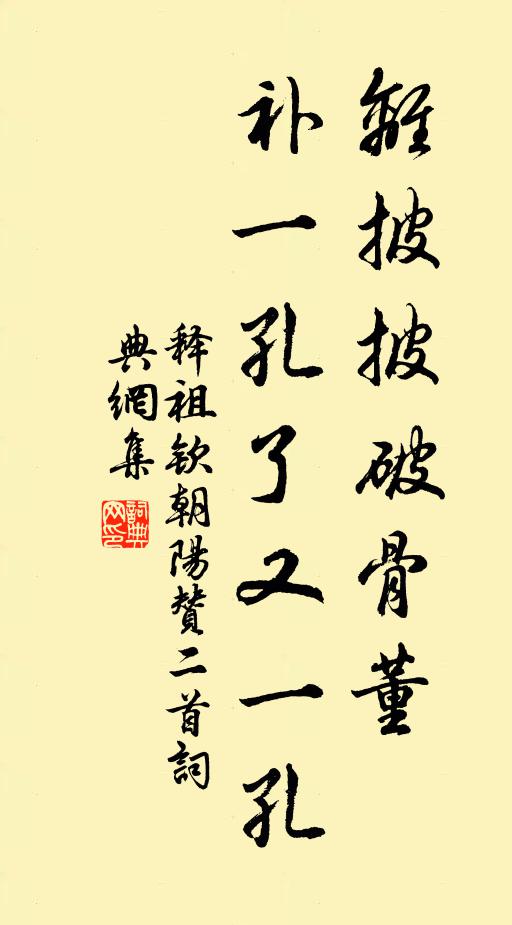 離披披破骨董
补一孔了又一孔
释祖钦朝陽贊二首詞
典網集
詞典网印